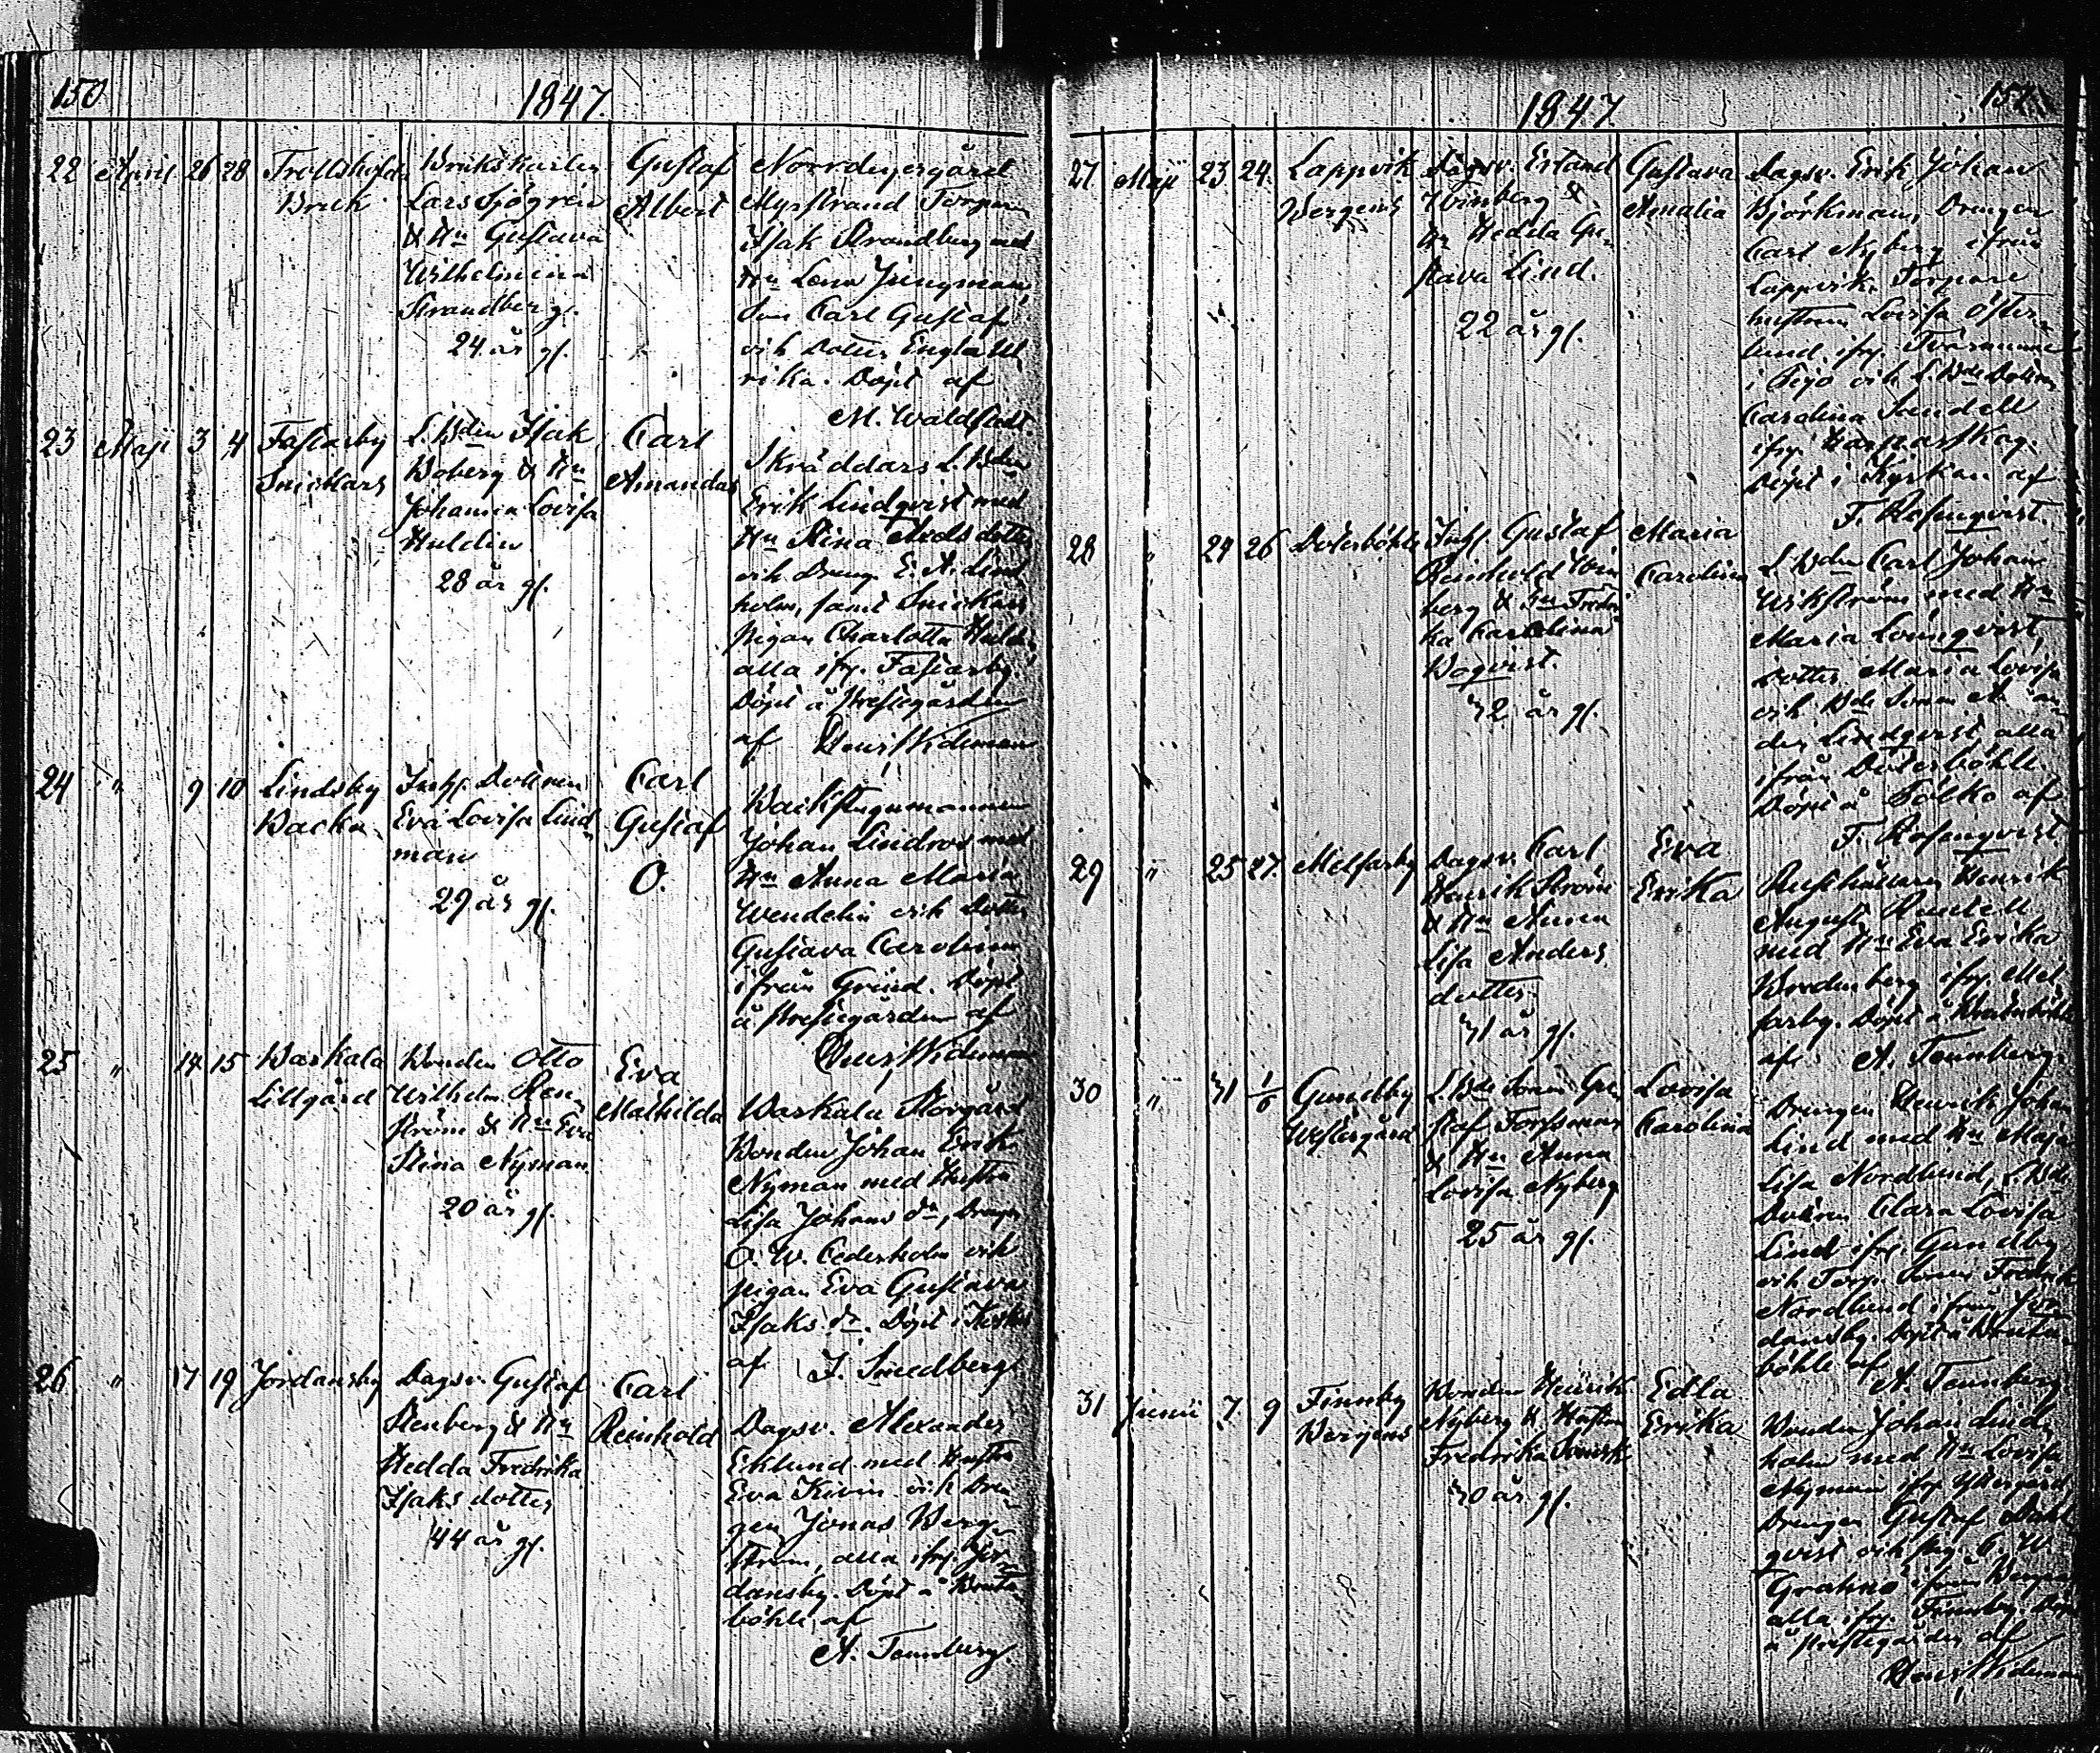 150
1847.
22 April 26 28 Trollshofda
Bruk
Brukskarlen
Lars Sjögren
& Hu Gustava
Wilhelmina
Strandberg.
24 år gl.
Gustaf
Albert
Norrdegergård
Myrstrand Torpare
Isak Strandberg med
Hu Lena Jungman,
Son Carl Gustaf
och Dotter
rika. Döpt af
M. Waldstedt.
23 Maji 3 4 Fastarby
Snickars
L. Bden Isak
Boberg & Hu
Johanna Lovisa
Huldin
28 år gl.
Carl
Amandus
Skräddars L. Bden
Erik Lindqvist med
Hu Stina Axelsdotter
och Dreng. E. A. Lind
holm, samt Snickars
pigan Charlotta Huldin,
alla ifr. Fastarby.
Döpt å Prestegården
af
24 " 9 10 Lindsby
Backa
Inhs. Dottren
Eva Lovisa Lind
man
29 år gl.
Carl
Gustaf
O.
Backstugumannen
Johan Lindros med
Hu Anna Maria
Wendelin och Dotter
Gustava Carolina
ifrån Grind. Döpt
å Prestegården af
25 " 14 15 Baskala
Lillgård
Bonden Otto
Wilhelm Ren
ström & Hu Eva
Stina Nyman
20 år gl.
Eva
Mathilda
Baskala Storgård
Bonden Johan Erik
Nyman med Hustru
Lisa Johans dr, Dreng
O. W. Cederholm och
pigan Eva Gustava
Isaks dr. Döpt i Kyrkan
af J. Smedberg
26 " 17 19 Jordansby
Dagsv. Gustaf
Stenberg & Hu
Hedda Fredrika
Isaks dotter
44 år gl.
Carl
Reinhold
Dagsv. Alexander
Eklund med Hustru
Eva Kivin och Dren
gen Jonas Berg
ström, alla ifr. Jor
dansby. Döpt å Bonta
böhle af
A. Tennberg.
151
1847
27 Maji 23 24. Lappvik
Bergens
Dagsv. Erland
Winberg &
Hu Hedda Gu
stava Lind.
22 år gl.
Gustava
Amalia
Dagsv. Erik Johan
Björkman, Drengen
Carl Nyberg ifrån
Lappvik. Torpare
hustrun Lovisa Öster
lund, ifr. Tvärminne
i Tejo och L. Bde Dottren
Carolina Sandell
ifr. Harparskog.
Döpt i Kyrkan af
F. Rosenqvist.
28 " 24 26 Österböhle
Inhs. Gustaf
Reinhold Win
berg & Hu Fredri
ka Carolina
Boqvist.
32 år gl.
Maria
Carolina
L. Bden Carl Johan
Wikström med Hu
Maria Lönnqvist,
Dotter Maria Lovisa
och Bde Sonen A
der Lindqvist alla
ifrån Österböhle.
Döpt å af
F. Rosenqvist.
29 " 25 27. Melfarby
Dagsv. Carl
Henrik Ström
& Hu Anna
Lisa Anders
dotter
31 år gl.
Eva
Erika
Rusthållaren Henrik
August Rundell
med Hu Eva Erika
Brodenberg ifr. Mel
farby. Döpt å Bontaböhle
af A. Tennberg.
30 " 31 1/6 Gundby
Westergård
L. Bde Sonen Gu
staf Forssman
& Hu Anna
Lovisa Nyberg
25 år gl.
Lovisa
Carolina
Drengen Henrik Johan
Lind med Hu Maja
Lisa Nordlund, L. Bde
Dottren Clara Lovisa
Lind ifr. Gundby
och Torp. Sonen Fredrik
Nordlund ifrån Jor
dansby. Döpt å Bonta
böhle af
A. Tennberg
31 Junii 7 9 Finnby
Bergens
Bonden Henrik
Nyberg & Hustru
Fredrika
30 år gl.
Edla
Erika
Bonden Johan Lind
holm med Hu Lovisa
Nyman ifr.
Drengen Gustaf Dahl
qvist och pig.
ifrån
alla ifr. Finnby. Döpt
å Prestegården af